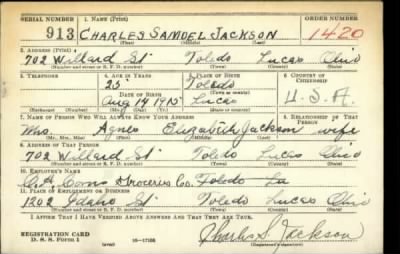 SERIAL NUMBER 1. NAME (Print) ORDER NUMBER
913 CHARLES SAMUEL JACKSON 1420
(First) (Middle) (Last)
2. ADDRESS (Print)
702 Willard St Toledo Lucas Ohio
(Number and street or R. F. D. number) (Town) (County) (State)
3. TELEPHONE 4. AGE IN YEARS 5. PLACE OF BIRTH 6. COUNTRY OF CITIZENSHIP
25 Toledo
(Town or county)
DATE OF BIRTH
Aug 14 1915 Lucas U.S.A.
(Exchange) (Number) (Mo.) (Day) (Yr.) (State or country)
7. NAME OF PERSON WHO WILL ALWAYS KNOW YOUR ADDRESS 8. RELATIONSHIP OF THAT PERSON
Mrs. Agnes Elizabeth Jackson wife
(Mr., Mrs., Miss) (First) (Middle) (Last)
9. ADDRESS OF THAT PERSON
702 Willard St Toledo Lucas Ohio
(Number and street or R. F. D. number) (Town) (County) (State)
10. EMPLOYER'S NAME
Groceries Co. Toledo
11. PLACE OF EMPLOYMENT OR BUSINESS
1202 Idaho St Toledo Lucas Ohio
(Number and street or R. F. D. number) (Town) (County) (State)
I AFFIRM THAT I HAVE VERIFIED ABOVE ANSWERS AND THAT THEY ARE TRUE.
REGISTRATION CARD
D. S. S. Form 1 (over) 16—17105 Charles S. Jackson
(Registrant's signature)